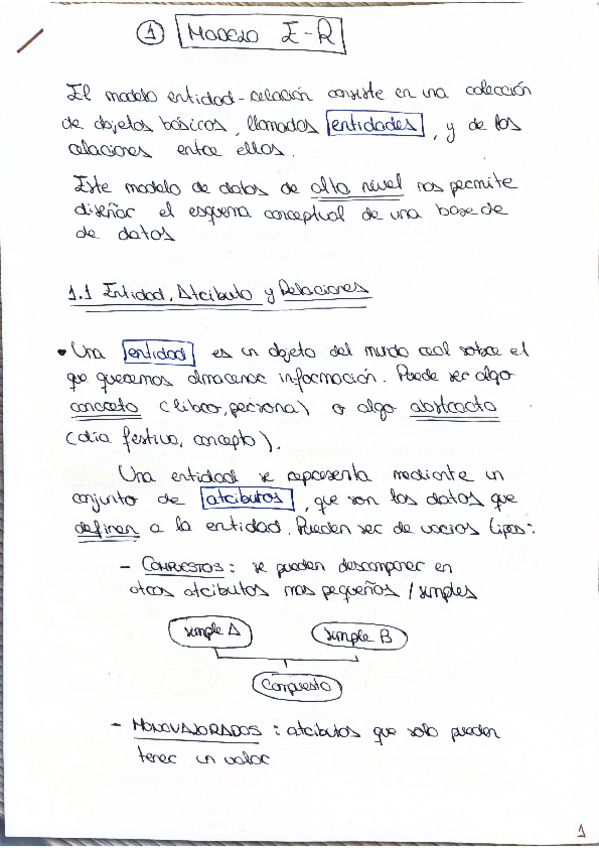 1 MODELO E-R
El modelo entidad-relación consiste en una colección
de objetos básicos, llamados entidades, y de las
relaciones entre ellos.
Este modelo de datos de alto nivel nos permite
diseñar el esquema conceptual de una base de
de datos
1.1 Entidad, Atributo y Relaciones
• Una entidad es un objeto del mundo real sobre el
que queremos almacenar información. Puede ser algo
concreto (libro, persona) o algo abstracto
(día festivo, concepto).
Una entidad se representa mediante un
conjunto de atributos, que son los datos que
definen a la entidad. Pueden ser de varios tipos:
- COMPUESTOS: se pueden descomponer en
otros atributos mas pequeños / simples
simple A simple B
Compuesto
- MONOVALORADOS: atributos que solo pueden
tener un valor
1